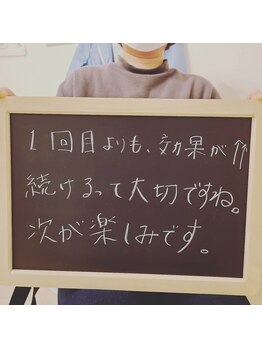 1回目よりも、効果が↑↑
続けるって大切ですね。
次が楽しみです。